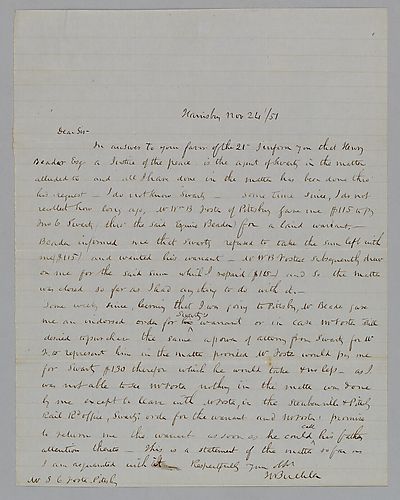 Harrisburg Nov 24/51
Dear Sir
In answer to your favor of the 21st I inform you that Henry
Beader Esqr a Justice of the peace is the agent of Swarty in the matter
alluded to and all I have done in the matter has been done this
his request — I do not know Swarty — Some time since, I do not
recollect how long ago, Mr Wm B Foster of Pitsburg gave me $115 to pay
Jno C Swarty thro' the said Esquire Beader for a land warrant —
Beader informed me that Swarty refused to take the sum left with
me ($115) and wanted his warrant — Mr W B Foster subsequently drew
on me for the said sum which I repaid $115 and so the matter
was closed so far as I had any thing to do with it —
Some weeks since, learning that I was going to Pittsbg, Mr Beader gave
me an endorsed order for Swarty's warrant or in case Mr Foster still
desired to purchase the same a power of attorny from Swarty for Mr
to represent him in the matter provided Mr Foster would pay me
for Swarty $130 for which he would take & no less — as I
was not able to see Mr Foster nothing in the matter was done
by me except to leave with Mr Foster, in the Steubenville & Pitsbg
Rail Rd office, Swarty's order for the warrant and Mr Foster's promise
to return me the warrant as soon as he could call his father's
attention thereto — This is a statement of the matter so far as
I am acquainted with it — Respectfully your Obt
W Buehler
Mr S C Foster Pitsbg